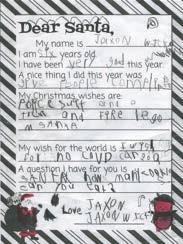 Dear Santa,
My name is Jaxon
I am six years old
I have been very good this year
A nice thing I did this year was
give people compli
My Christmas wishes are
police suit and a
and fire lego
santa
My wish for the world is I wish
for no covid
A question I have for you is
SANTA how many cookies
can you eat?
Love JAXON
JAXON